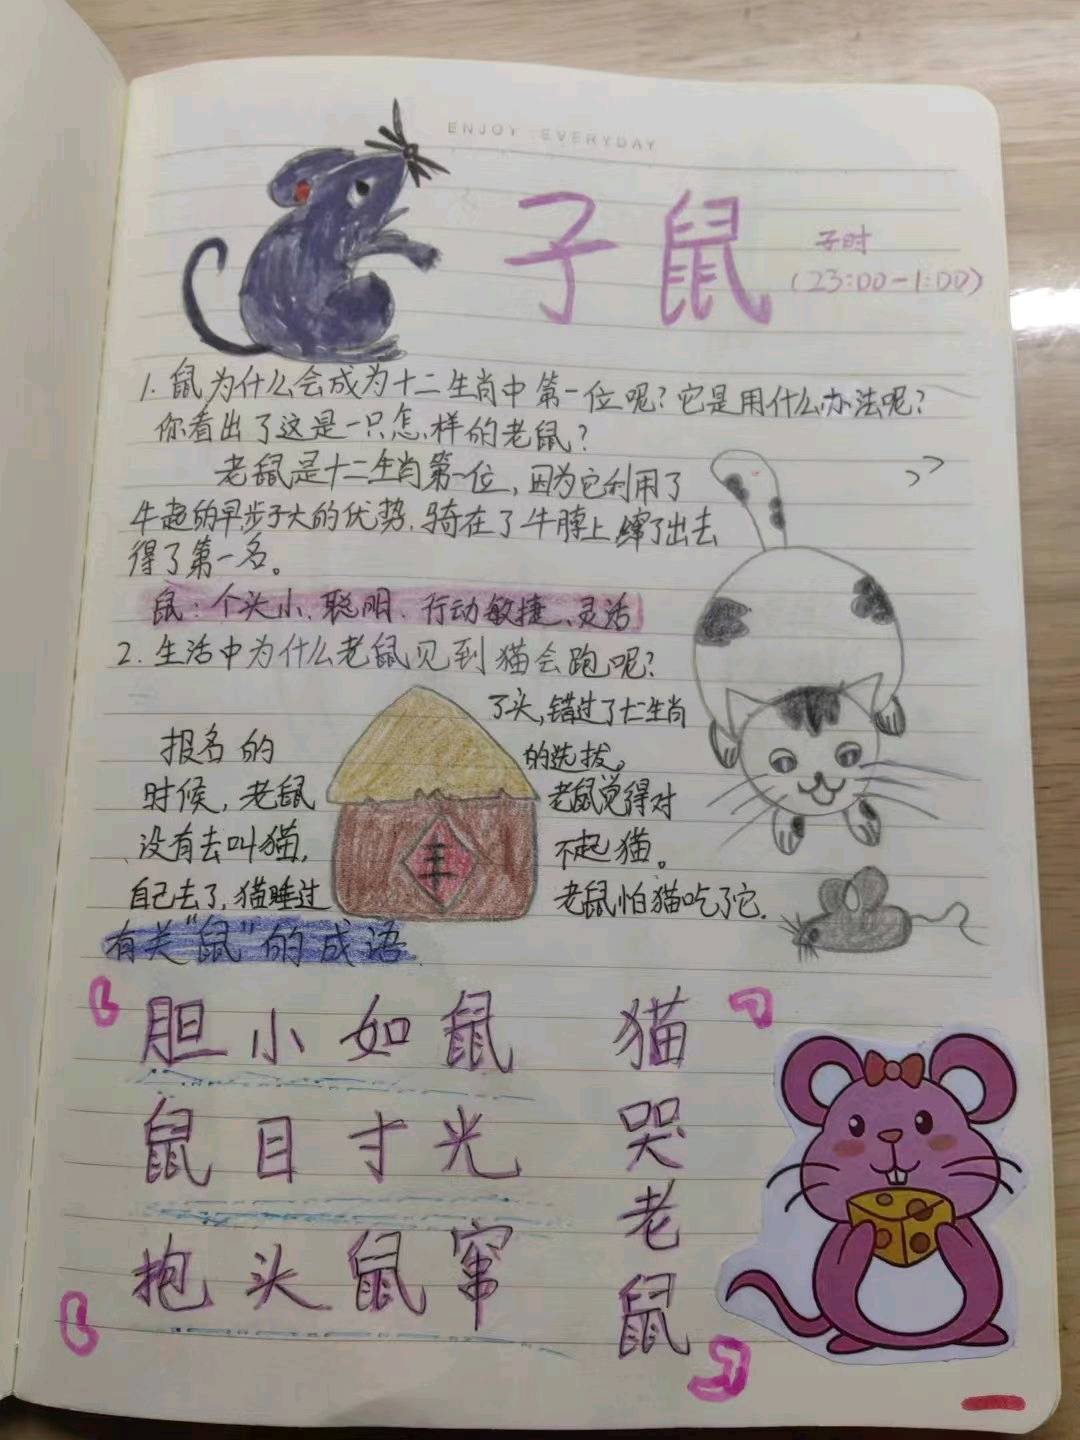 ENJOY EVERYDAY
子鼠
子时
(23:00-1:00)
1. 鼠为什么会成为十二生肖中第一位呢?它是用什么办法呢?
你看出了这是一只怎样的老鼠?
老鼠是十二生肖第一位,因为它利用了
牛起的早步子大的优势,骑在了牛脖上,蹿了出去
得了第一名。
鼠:个头小、聪明、行动敏捷、灵活
2. 生活中为什么老鼠见到猫会跑呢?
报名的
时候,老鼠
没有去叫猫,
自己去了,猫睡过
了头,错过了十二生肖
的选拔。
老鼠觉得对
不起猫。
老鼠怕猫吃了它.
有关"鼠"的成语
胆小如鼠
鼠目寸光
抱头鼠窜
猫哭老鼠